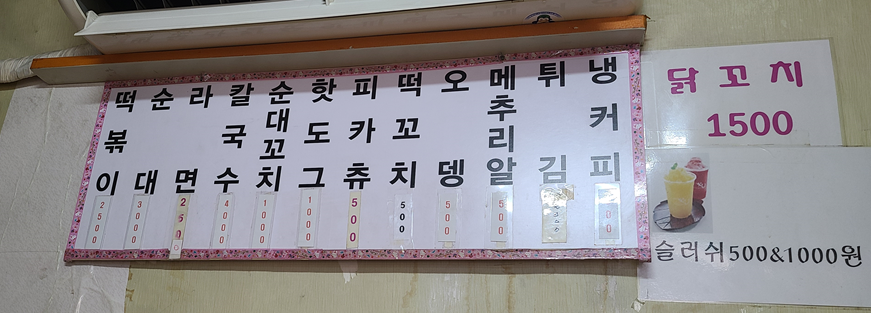 떡볶이 2500
순대 3000
라면 2500
칼국수 4000
순대꼬치 1000
핫도그 1000
피카츄 500
떡꼬치 500
오뎅 500
메추리알 500
튀김
냉커피
닭꼬치
1500
슬러쉬500&1000원